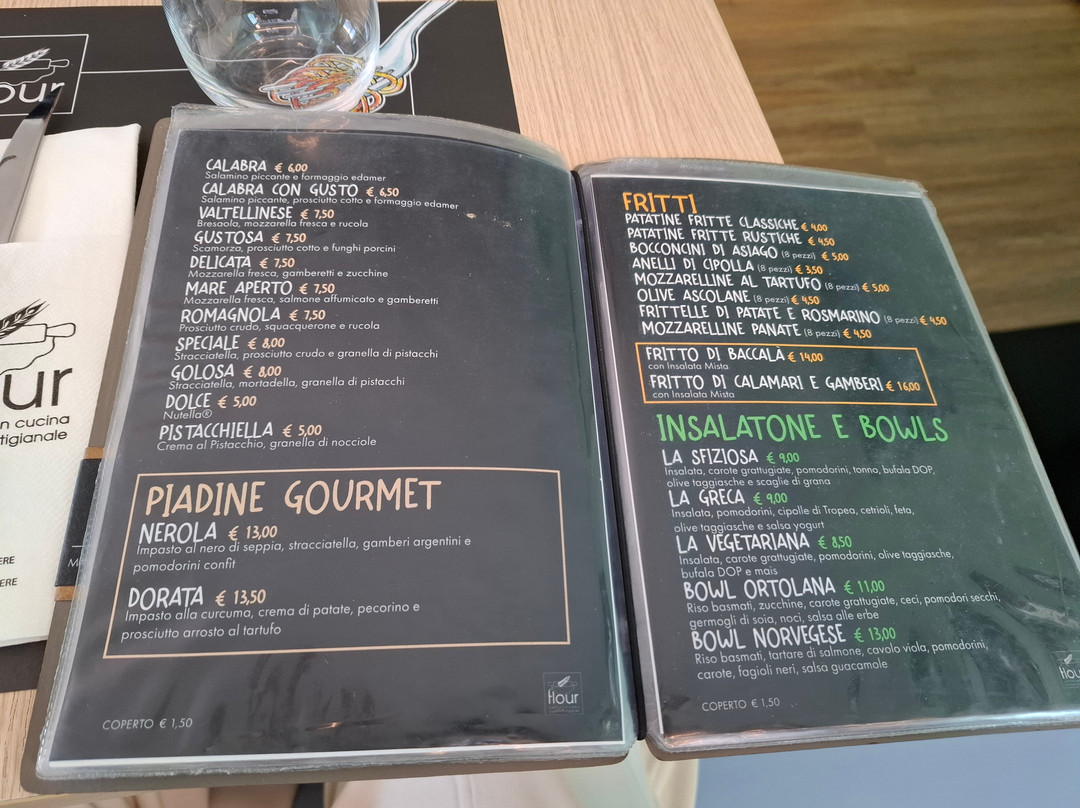 our
CALABRA € 6,00
Salamino piccante e formaggio edamer
CALABRA CON GUSTO € 6,50
Salamino piccante, prosciutto cotto e formaggio edamer
VALTELLINESE € 7,50
Bresaola, mozzarella fresca e rucola
GUSTOSA € 7,50
Scamorza, prosciutto cotto e funghi porcini
DELICATA € 7,50
Mozzarella fresca, gamberetti e zucchine
MARE APERTO € 7,50
Mozzarella fresca, salmone affumicato e gamberetti
ROMAGNOLA € 7,50
Prosciutto crudo, squacquerone e rucola
SPECIALE € 8,00
Stracciatella, prosciutto crudo e granella di pistacchi
GOLOSA € 8,00
Stracciatella, mortadella, granella di pistacchi
DOLCE € 5,00
Nutella®
PISTACCHIELLA € 5,00
Crema al Pistacchio, granella di nocciole
PIADINE GOURMET
NEROLA € 13,00
Impasto al nero di seppia, stracciatella, gamberi argentini e
pomodorini confit
DORATA € 13,50
Impasto alla curcuma, crema di patate, pecorino e
prosciutto arrosto al tartufo
flour
COPERTO € 1,50
FRITTI
PATATINE FRITTE CLASSICHE € 4,00
PATATINE FRITTE RUSTICHE € 4,50
BOCCONCINI DI ASIAGO (8 pezzi) € 5,00
ANELLI DI CIPOLLA (8 pezzi) € 3,50
MOZZARELLINE AL TARTUFO (8 pezzi) € 5,00
OLIVE ASCOLANE (8 pezzi) € 4,50
FRITTELLE DI PATATE E ROSMARINO (8 pezzi) € 4,50
MOZZARELLINE PANATE (8 pezzi) € 4,50
FRITTO DI BACCALÀ € 14,00
con Insalata Mista
FRITTO DI CALAMARI E GAMBERI € 16,00
con Insalata Mista
INSALATONE E BOWLS
LA SFIZIOSA € 9,00
Insalata, carote grattugiate, pomodorini, tonno, bufala DOP,
olive taggiasche e scaglie di grana
LA GRECA € 9,00
Insalata, pomodorini, cipolle di Tropea, cetrioli, feta,
olive taggiasche e salsa yogurt
LA VEGETARIANA € 8,50
Insalata, carote grattugiate, pomodorini, olive taggiasche,
bufala DOP e mais
BOWL ORTOLANA € 11,00
Riso basmati, zucchine, carote grattugiate, ceci, pomodori secchi,
germogli di soia, noci, salsa alle erbe
BOWL NORVEGESE € 13,00
Riso basmati, tartare di salmone, cavolo viola, pomodorini,
carote, fagioli neri, salsa guacamole
COPERTO € 1,50
our
n cucina
tigianale
ERE
ERE